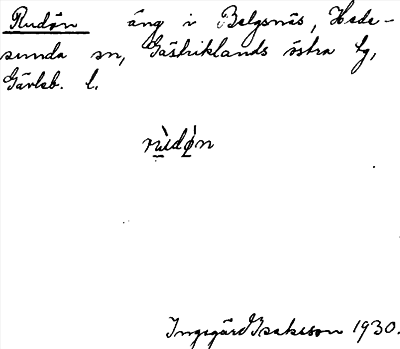 Rudön äng i Balgsnäs, Hede-
sunda sn, Gästriklands östra tg,
Gävleb. l.
Ingegärd Isakson 1930.